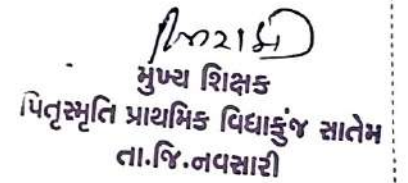 મુખ્ય શિક્ષક
પિતૃસ્મૃતિ પ્રાથમિક વિદ્યાકુંજ સાતેમ
તા.જિ.નવસારી